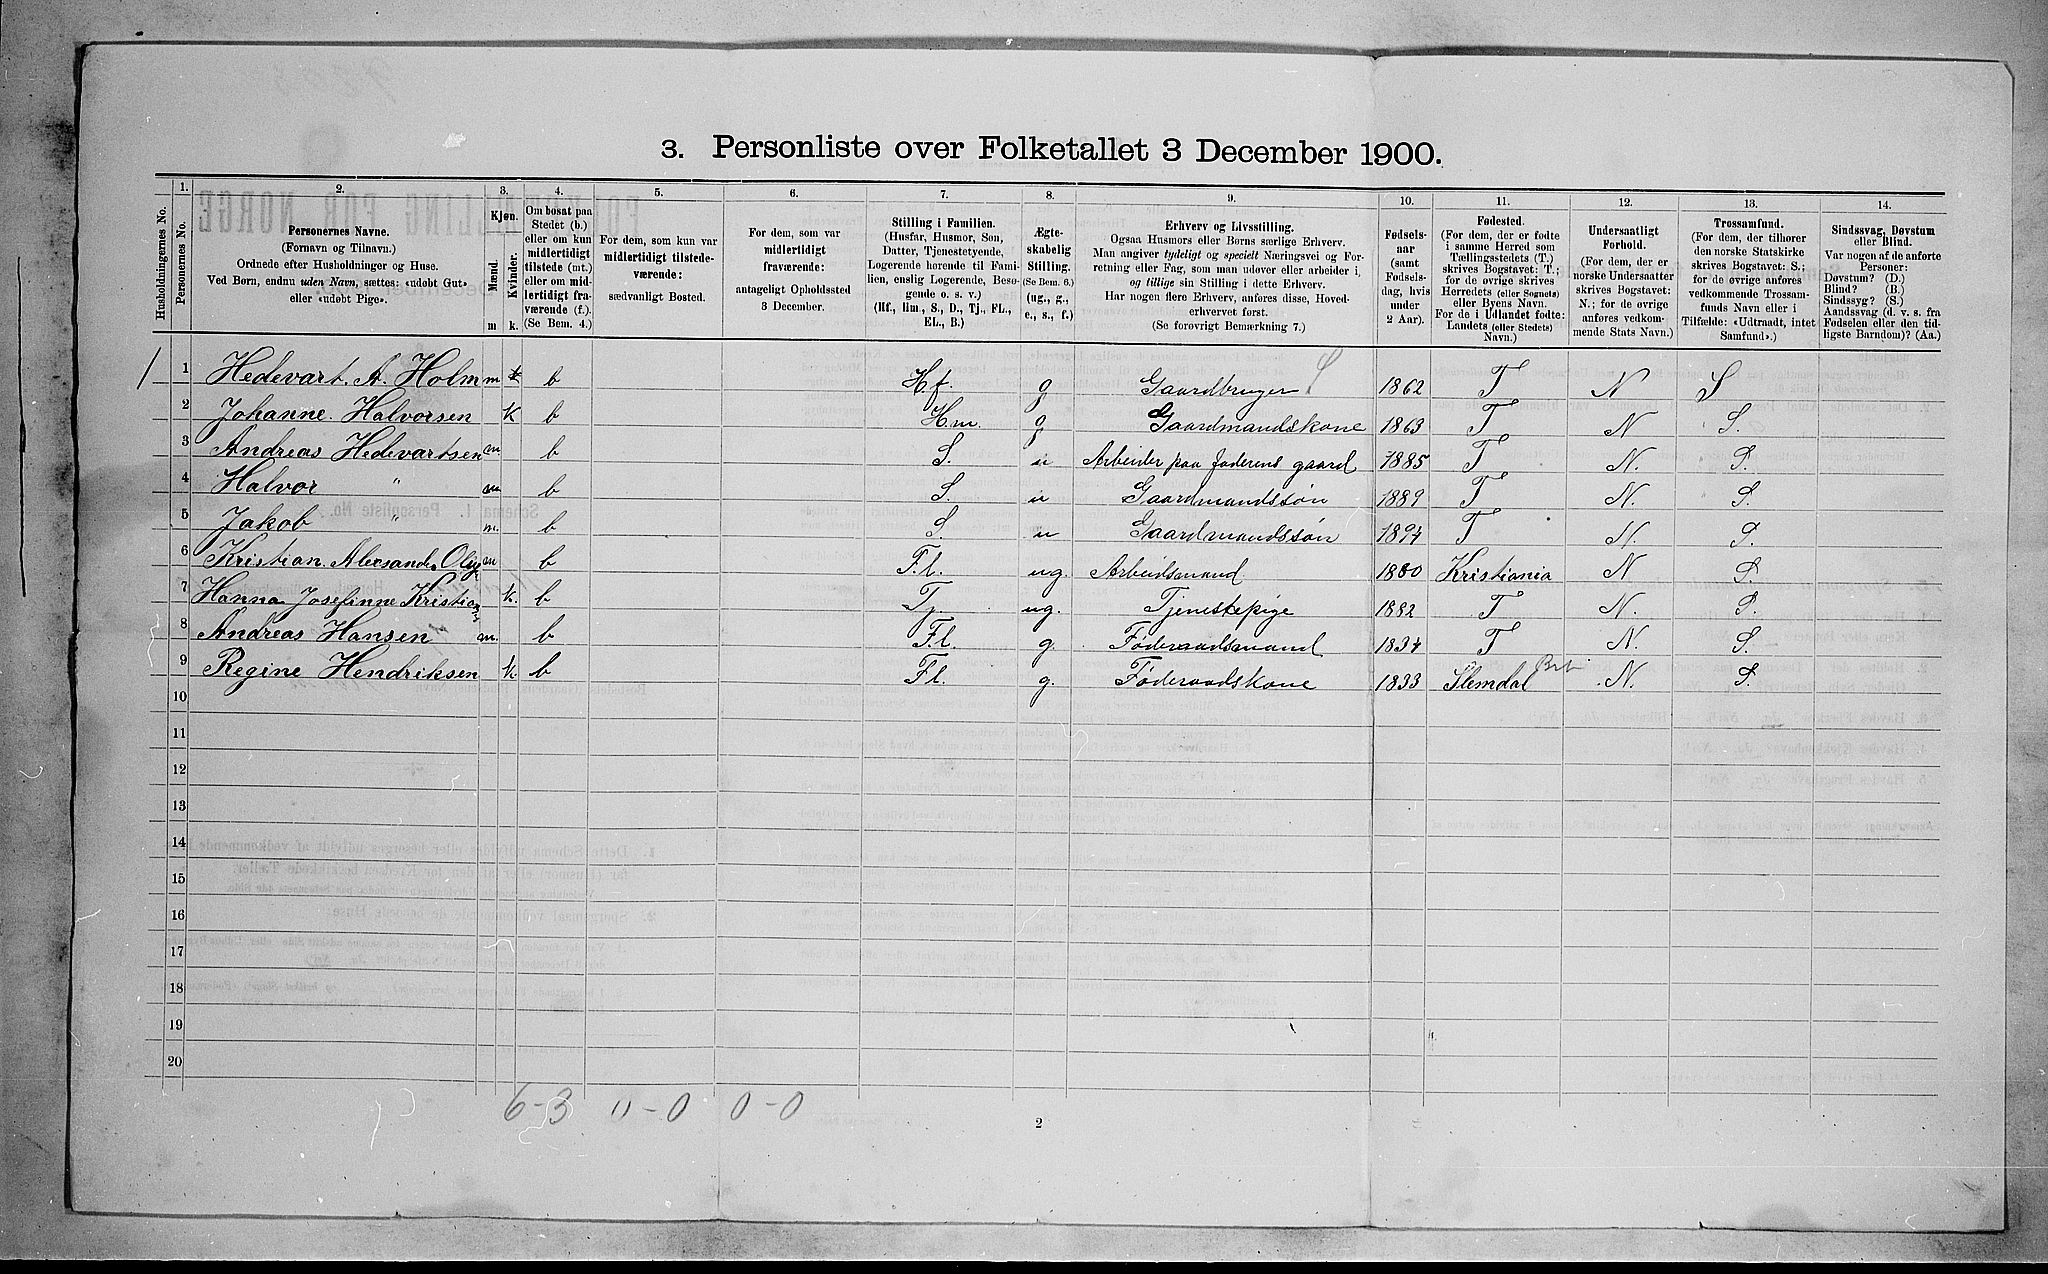 3. Personliste over Folketallet 3 December 1900.
Husholdningernes No.
1.
Personernes No.
2.
Personernes Navne.
(Fornavn og Tilnavn.)
Ordnede efter Husholdninger og Huse.
Ved Børn, endnu uden Navn, sættes: «udøbt Gut»
eller «udøbt Pige».
3.
Kjøn.
Mænd.
Kvinder.
m k.
4.
Om bosat paa
Stedet (b.)
eller om kun
midlertidigt
tilstede (mt.)
eller om mid-
lertidigt fra-
værende (f.).
(Se Bem. 4.)
5.
For dem, som kun var
midlertidigt tilstede-
værende:
sædvanligt Bosted.
6.
For dem, som var
midlertidigt
fraværende:
antageligt Opholdssted
3 December.
7.
Stilling i Familien.
(Husfar, Husmor, Søn,
Datter, Tjenestetyende,
Logerende hørende til Fami-
lien, enslig Logerende, Besø-
gende o. s. v.)
(Hf., Hm., S., D., Tj., FL.,
EL., B.)
8.
Ægte-
skabelig
Stilling.
(Se Bem. 6.)
(ug., g.,
e., s., f.)
9.
Erhverv og Livsstilling.
Ogsaa Husmors eller Børns særlige Erhverv.
Man angiver tydeligt og specielt Næringsvei og For-
retning eller Fag, som man udøver eller arbeider i,
og tillige sin Stilling i dette Erhverv.
Har nogen flere Erhverv, anføres disse, Hoved-
erhvervet først.
(Se forøvrigt Bemærkning 7.)
10.
Fødsels-
aar
(samt
Fødsels-
dag, hvis
under
2 Aar).
11.
Fødested.
(For dem, der er fødte
i samme Herred som
Tællingsstedets (T.)
skrives Bogstavet: T.;
for de øvrige skrives
Herredets (eller Sognets)
eller Byens Navn.
For de i Udlandet fødte:
Landets (eller Stedets)
Navn.)
12.
Undersaatligt
Forhold.
(For dem, der er
norske Undersaatter
skrives Bogstavet:
N.; for de øvrige
anføres vedkom-
mende Stats Navn.)
13.
Trossamfund.
(For dem, der tilhører
den norske Statskirke
skrives Bogstavet: S.;
for de øvrige anføres
vedkommende Trossam-
funds Navn eller i
Tilfælde: «Udtraadt, intet
Samfund».)
14.
Sindssvag, Døvstum
eller Blind.
Var nogen af de anførte
Personer:
Døvstum? (D.)
Blind? (B.)
Sindssyg? (S.)
Aandssvag (d. v. s. fra
Fødselen eller den tid-
ligste Barndom)? (Aa.)
1 1 Hedevart. A. Holm m b Hf. g Gaardbruger S 1862 T N S
2 Johanne. Halvorsen k b Hm. g Gaardmandskone 1863 T N S.
3 Andreas Hedevartsen m b S. u Arbeider paa faderens gaard 1885 T N. S.
4 Halvor " m b S. u Gaardmandssøn 1889 T N. S.
5 Jakob " m. b S. u Gaardmandssøn 1894 T N. S.
6 Kristian. Alexander m b F.l. ug. Arbeidsmand 1880 Kristiania N S.
7 Hanna Josefinne k. b Tj. ug. Tjenestepige 1882 T N. S.
8 Andreas Hansen m. b F.l. g. Føderaadsmand 1834 T N. S.
9 Regine Hendriksen k. b Fl. g. Føderaadskone 1833 Slemdal N. S.
10
11
12
13
14
15
16
17
18
19
20
6-3 0-0 0-0
2